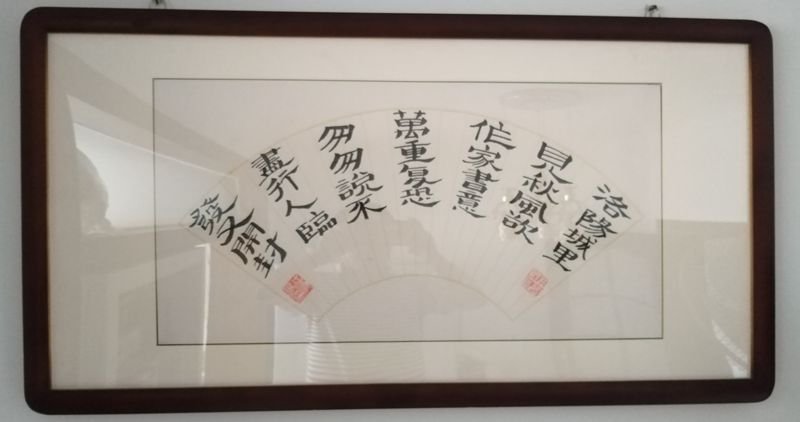 洛陽城里
見秋風欲
作家書意
萬重复恐
匆匆説不
盡行人臨
發又開封